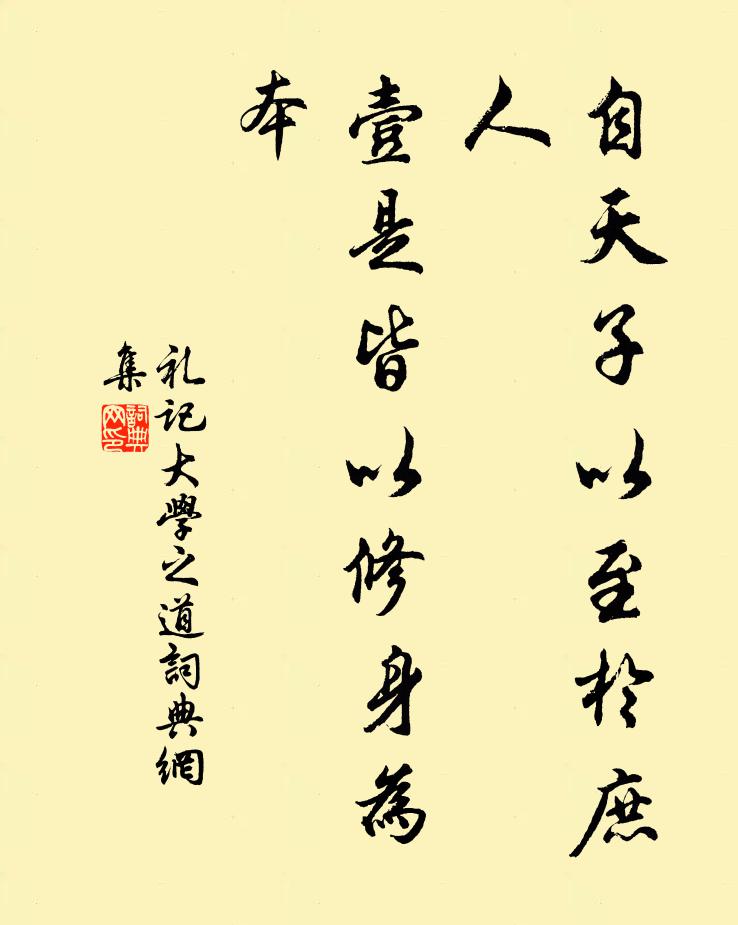 自天子以至於庶
人
壹是皆以修身為
本
礼记大學之道詞典網
集
詞典
网印